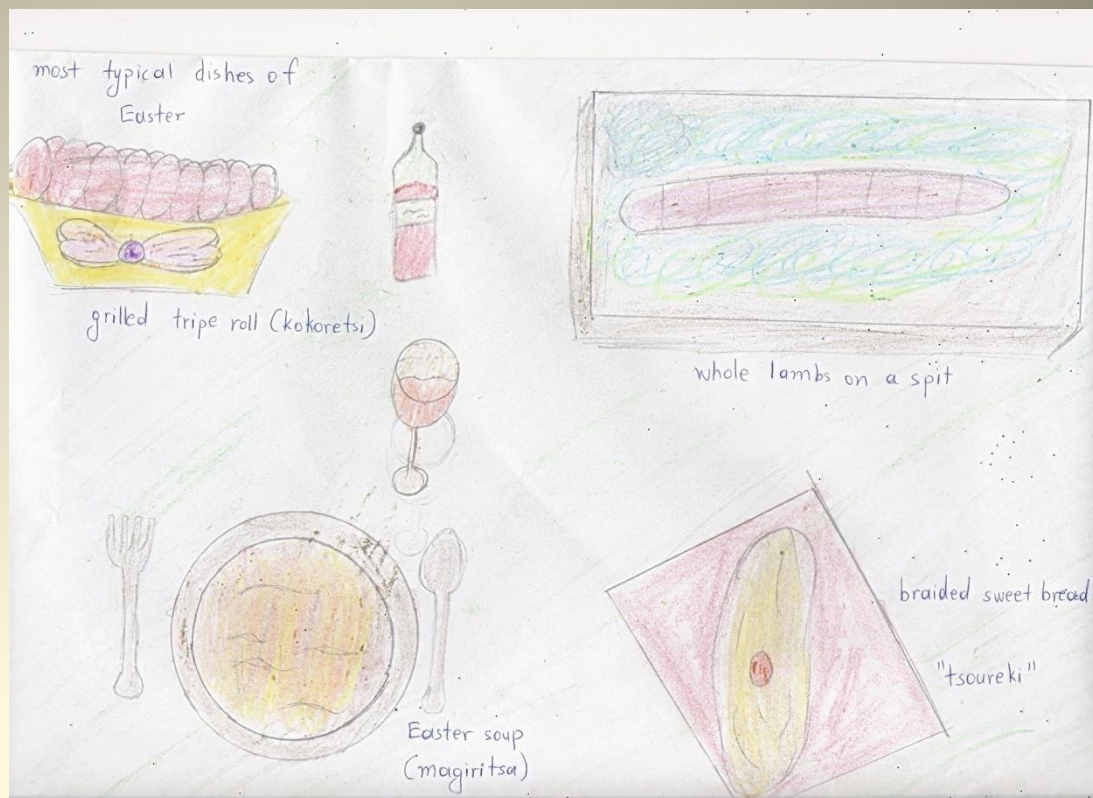 most typical dishes of
Easter
grilled tripe roll (kokoretsi)
whole lambs on a spit
braided sweet bread
"tsoureki"
Easter soup
(magiritsa)